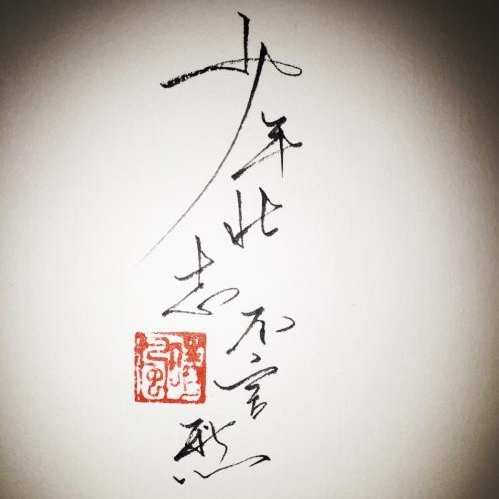 少年壮志不言愁